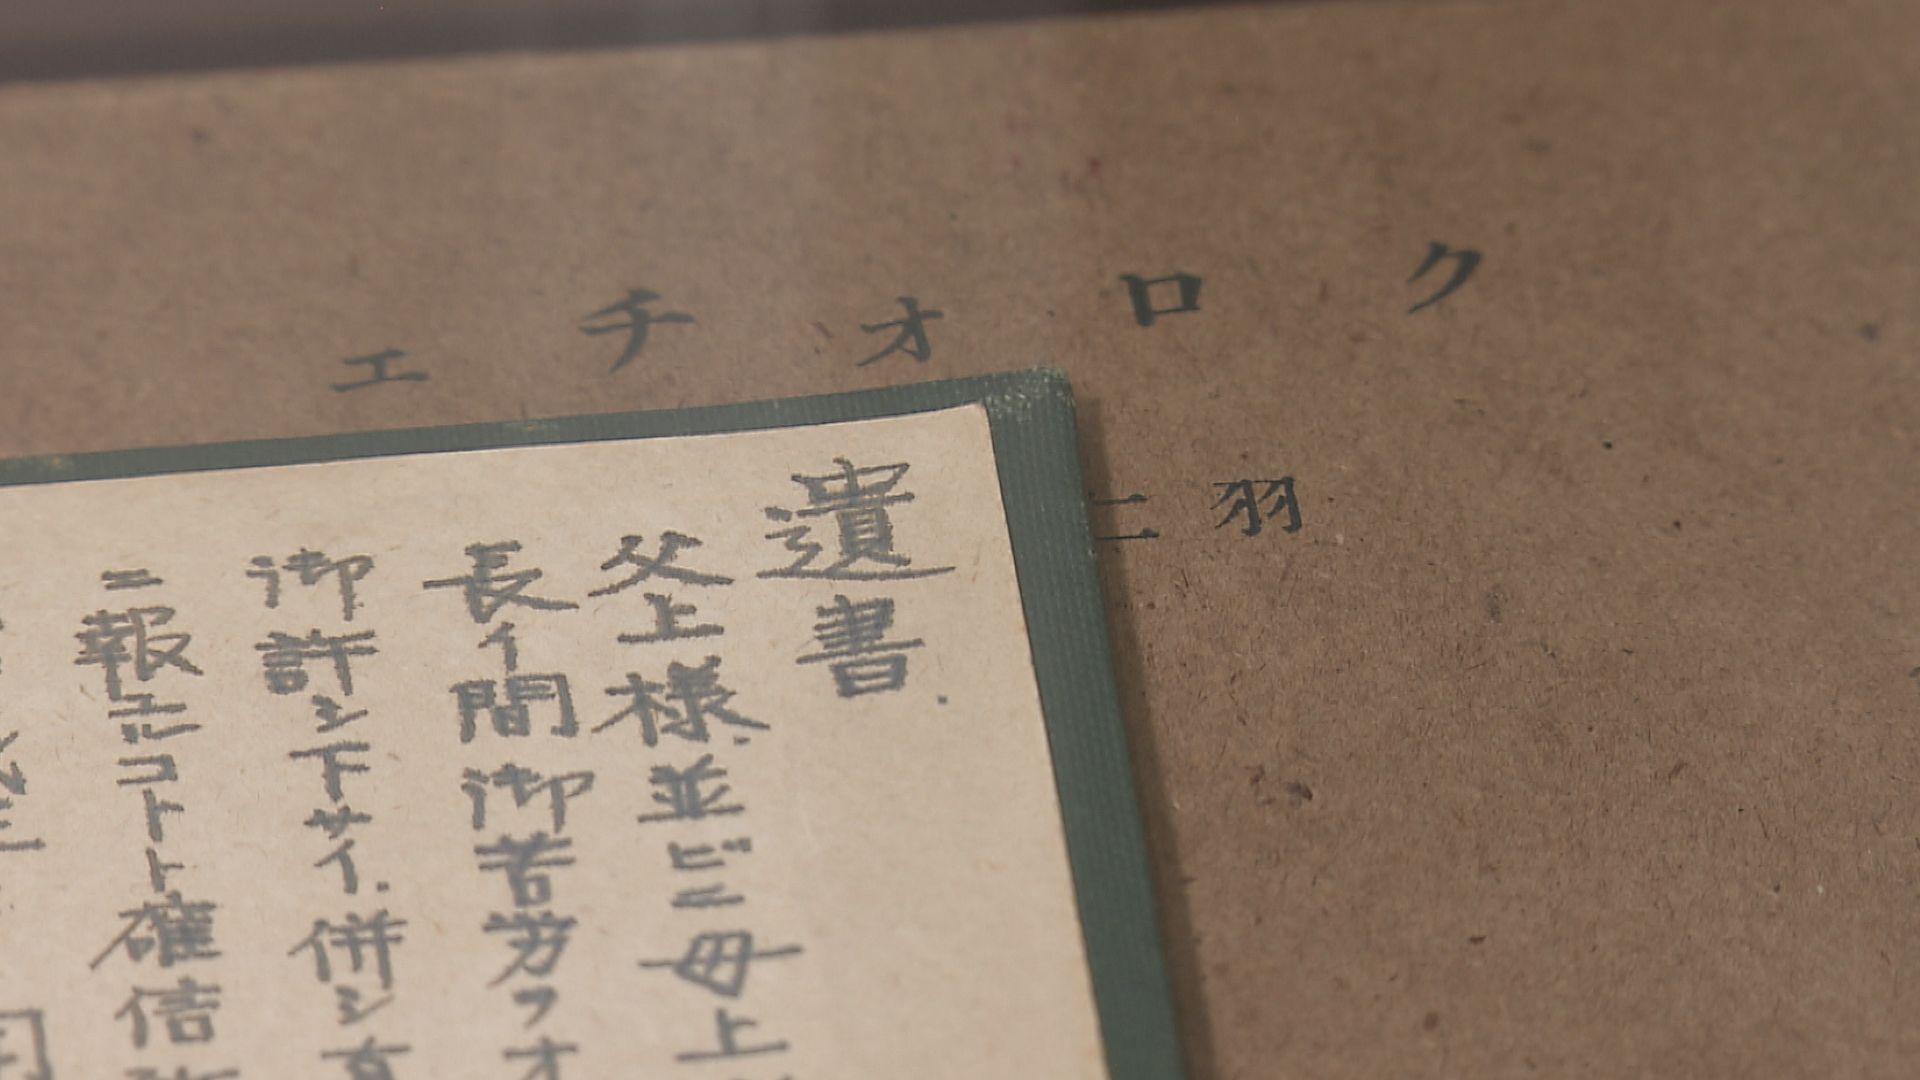 クロオチエ
羽二
遺書
父上様並ビニ母上
長イ間御苦労
御許シ下サイ.併シ
ニ報ユルコトト確信